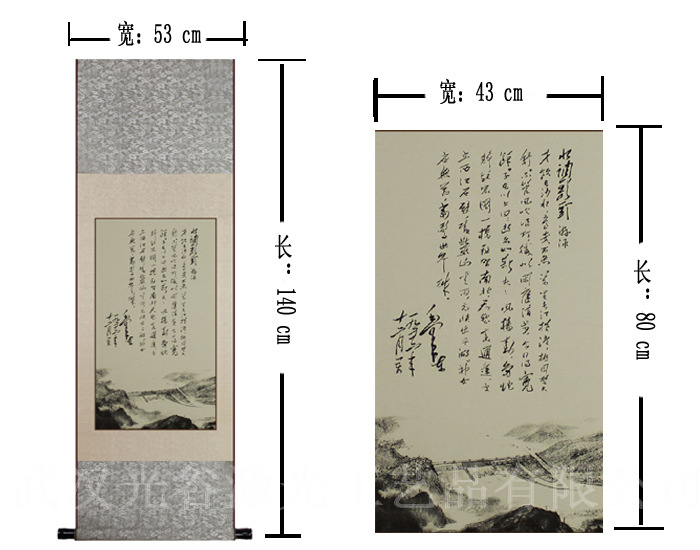 宽: 53 cm
长: 140 cm
宽: 43 cm
长: 80 cm
水调歌头 游泳
才饮长沙水又食武昌鱼万里长江横渡极目楚天
舒不管风吹浪打胜似闲庭信步今日得宽
子在川上曰逝者如斯夫风樯动龟蛇
静起宏图一桥飞架南北天堑变通途更
立西江石壁截断巫山云雨高峡出平湖神女
应无恙当惊世界殊
毛泽东
武汉光谷 艺品有限公司